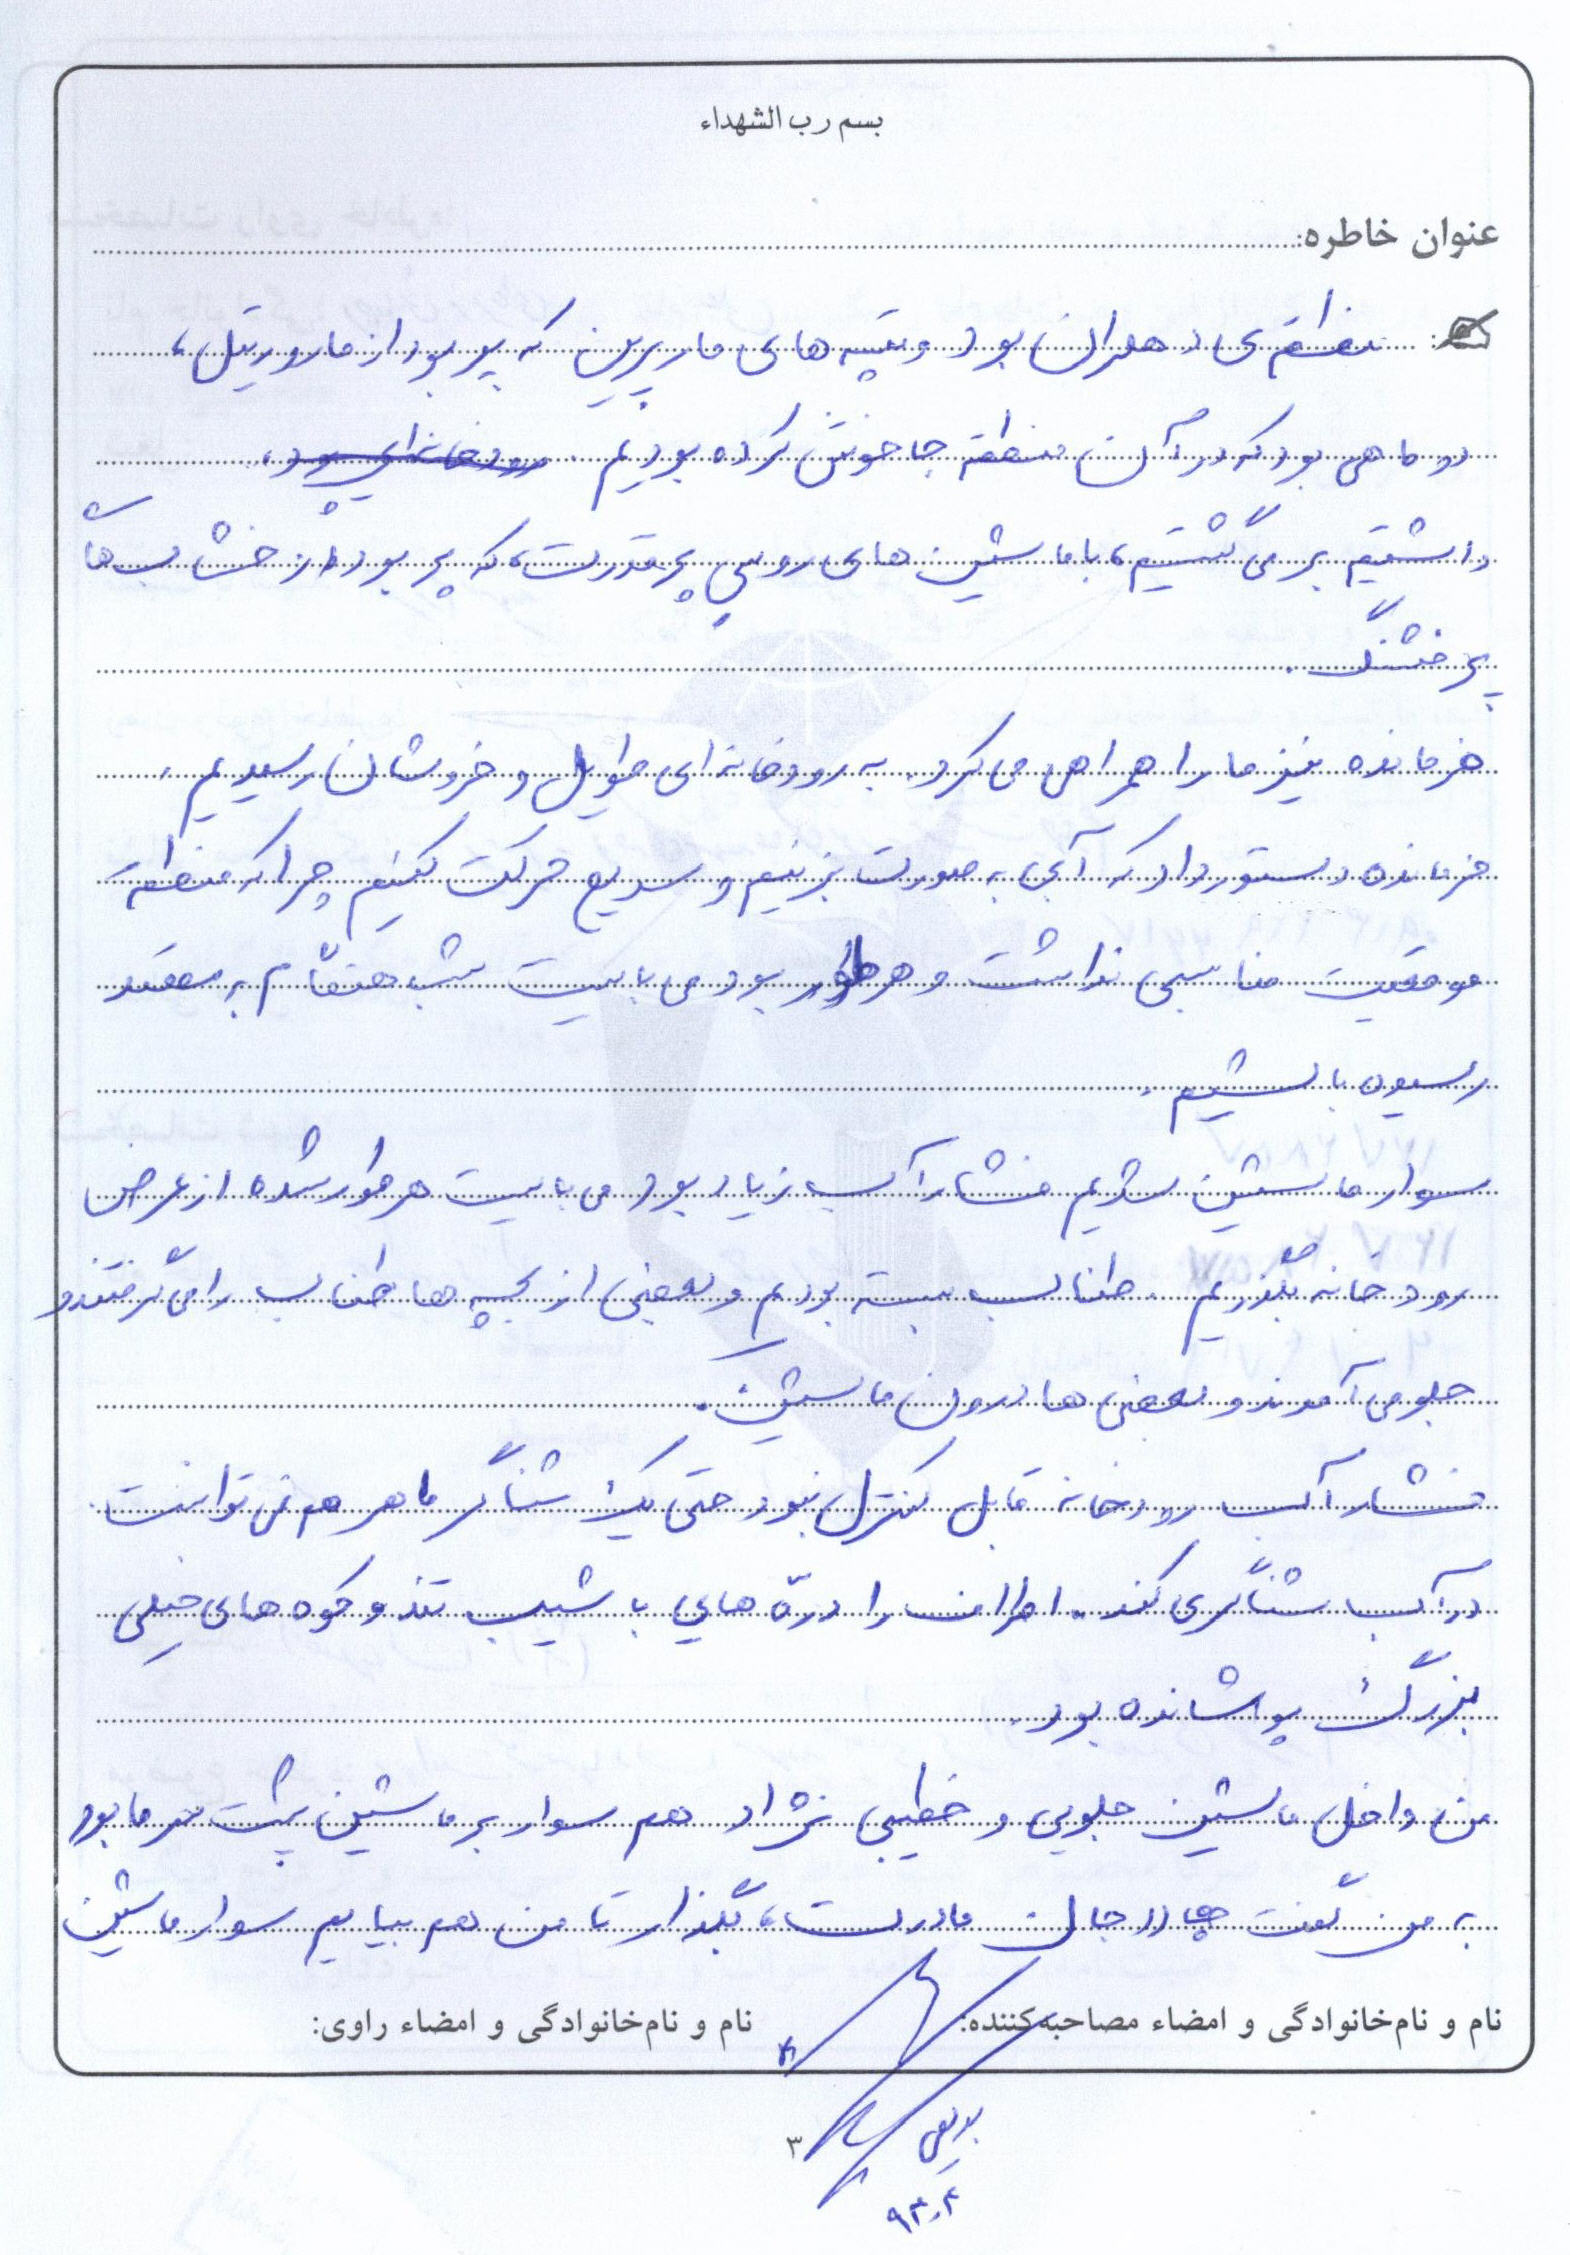 بسم رب الشهداء
عنوان خاطره:
منطقه‌ی دهلران بود و تپه های ماربرین که پر بود از مار و رتیل،
دو ماهی بود که در آن منطقه جا خوش کرده بودیم. رودخانه‌ای بود،
داشتیم بر می گشتیم، با ماشین های روسی پر قدرت، که پر بود از خشاب ها
پر فشنگ.
فرمانده نیز ما را همراهی می کرد. به رودخانه ای طویل و خروشان رسیدیم.
فرمانده دستور داد که آبی به صورت بزنیم و سریع حرکت کنیم چرا که منطقه
موقعیت مناسبی نداشت و هرطور بود می بایست شب هنگام به مقصد
رسیده باشیم.
سوار ماشین شدیم فشار آب زیاد بود می بایست هرطور شده از عرض
رودخانه بگذریم. طناب بسته بودیم و بعضی از بچه ها طناب را می گرفتند و
جلو می آمدند و بعضی ها درون ماشین.
فشار آب رودخانه قابل کنترل نبود حتی یک شناگر ماهر هم نمی توانست
در آب شناگری کند. اطراف را درّه هایی با شیب تند و کوه های خیلی
بزرگ پوشانده بود.
من داخل ماشین جلویی و خطیبی نژاد هم سوار بر ماشین پشت سر ما بود
به من گفت جان مادرت، بگذار تا من هم بیایم سوار ماشین
نام و نام‌خانوادگی و امضاء مصاحبه‌کننده:
نام و نام‌خانوادگی و امضاء راوی:
۳
۹۳.۴